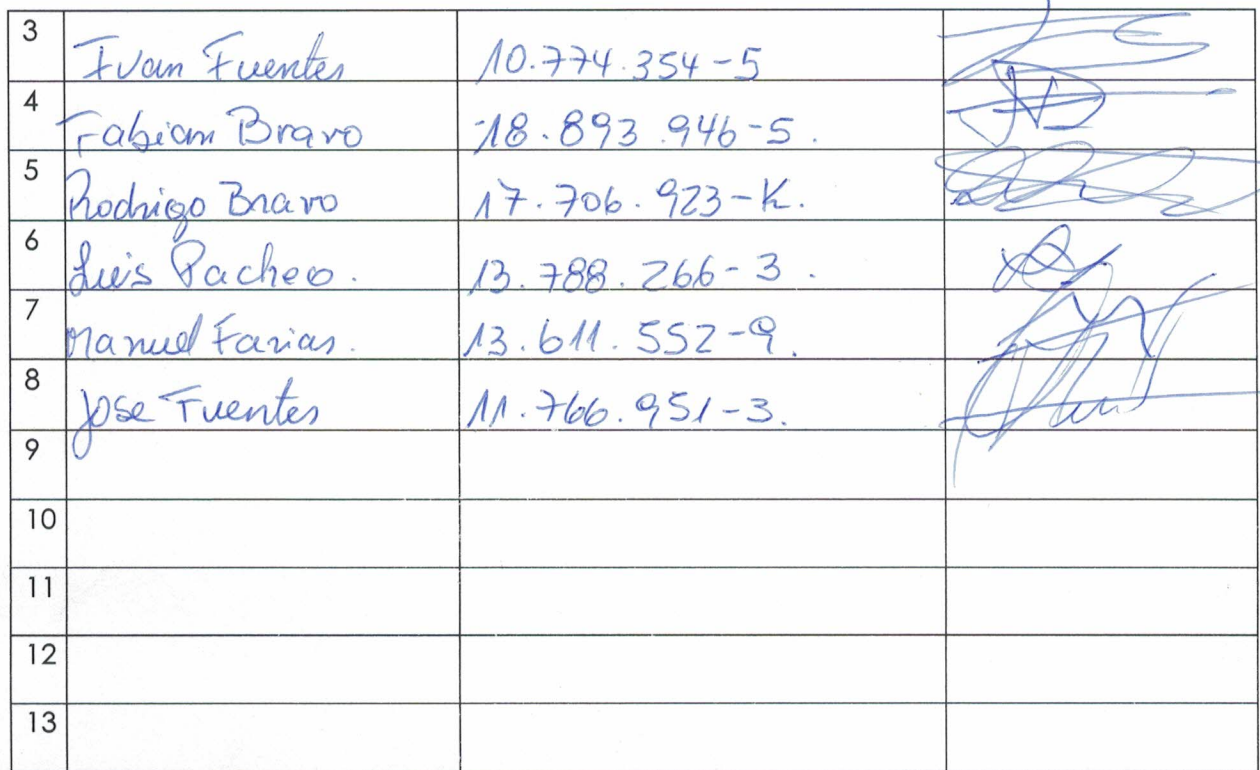 3 Ivan Fuentes 10.774.354-5
4 Fabian Bravo 18.893.946-5.
5 Rodrigo Bravo 17.706.923-K.
6 Luis Pacheco. 13.788.266-3.
7 Manuel Farias. 13.611.552-9.
8 Jose Fuentes 11.766.951-3.
9
10
11
12
13